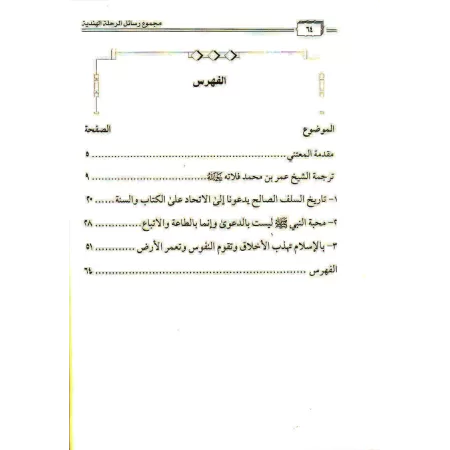 مجموع رسائل الرحلة الهندية
٦٤
الفهرس
الموضوع الصفحة
مقدمة المعتني ٥
ترجمة الشيخ عمر بن محمد فلاته ٩
١- تاريخ السلف الصالح يدعونا إلى الاتحاد على الكتاب والسنة ٢٠
٢- محبة النبي ﷺ ليست بالدعوى وإنما بالطاعة والاتباع ٣٨
٣- بالإسلام تهذب الأخلاق وتقوم النفوس وتعمر الأرض ٥١
الفهرس ٦٤